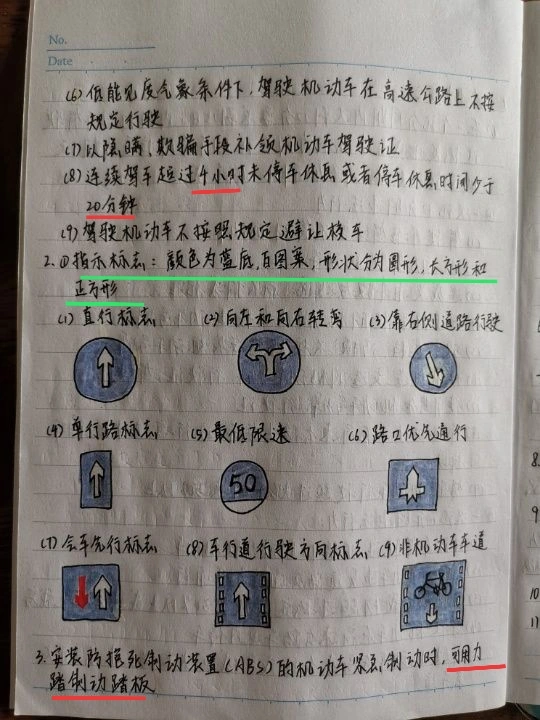 No.
Date
(6) 低能见度气象条件下,驾驶机动车在高速公路上不按
规定行驶
(7) 以隐瞒、欺骗手段补领机动车驾驶证
(8) 连续驾车超过4小时未停车休息或者停车休息时间少于
20分钟
(9) 驾驶机动车不按照规定避让校车
2.①指示标志:颜色为蓝底,白图案,形状分为圆形,长方形和
正方形
(1) 直行标志 (2) 向左和向右转弯 (3) 靠右侧道路行驶
(4) 单行路标志 (5) 最低限速 (6) 路口优先通行
50
(7) 会车先行标志 (8) 车行道行驶方向标志 (9) 非机动车车道
3.安装防抱死制动装置(ABS)的机动车紧急制动时,可用力
踏制动踏板
8
9
10
11